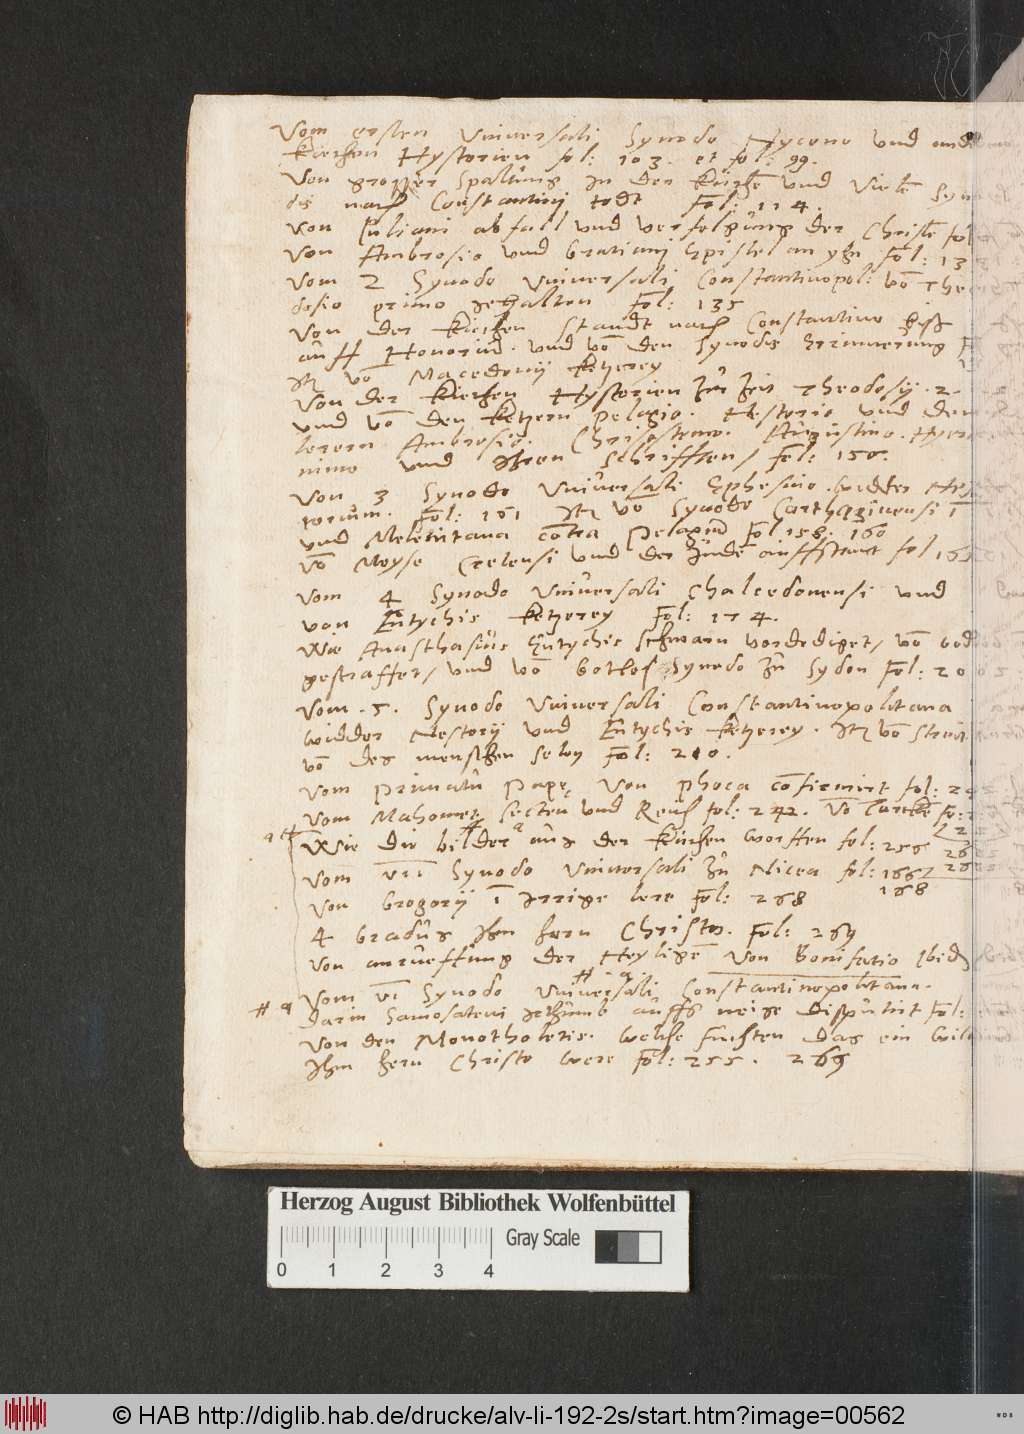 Vom ersten Vniuersali Synodo Nyceno vnd and
kirchen Hystorien fol: 103. et fol: 99.
Von grosser spaltung in der kirche vnd viele Syn
dis nach Constantinj todt Fol: 114.
von Juliani abfall vnd verfolgung der Christe fol
Von Ambrosio vnd Gratianj Epistel an yhn Fol: 13
Vom 2 Synodo Vniuersali Constantinopol: vo The
dosio primo gehalten Fol: 135
Von der Kirchen standt nach Constantino biss
auff Honoriu. vnd vo den Synodis Erinnerung F
Ite vo Macedonij ketzerey
Von der kirchen Hystorien zur zeit Theodosij. 2.
vnd vo den ketzern Pelagio. Nestorio vnd den
lerern Ambrosio. Chrisostomo. Augustino. Hyero
nimo vnd ihren schrifften / Fol: 150.
Von 3 Synodo Vniuersali Ephesino. widder Nes
torium. Fol: 151 Ite vo Synodo Carthaginensi i
vnd Meleuitana contra Pelagiu Fol 158. 160
Vo Moyse Cretensi vnd der Jüde auffstant fol 16
Vom 4 Synodo Vniuersali Chalcedonensi vnd
von Eutychis ketzerey Fol: 174.
Wie Anasthasius Eutychis schwarm verdediget / vo God
gestraffet / vnd vo Gotlos Synodo zu Sydon Fol: 20
Vom .5. Synodo Vniuersali Constantinopolitana
widder Nestorij vnd Eutychis ketzerey. Ite vo streit
vo des menschen selen Fol: 210.
Vom Primatu Pape Von phoca confirmirt fol: 24
Vom Mahomet secten vnd Reich fol: 242. Vo Turcken Fo:
Wie die bilder aus der kirchen worffen fol: 256
Vom VII Synodo Vniuersali zu Nicea fol: 166
168
Von Gregorij i Irrige lere Fol: 268
4 Gradus Ihm hern Christo. Fol: 269
Von anrueffung der Heylige von Bonifatio Ibid
Vom VI Synodo Vniuersali Constantinopolitana.
Darin Samosateni auffs neige disputirt Fol:
Von den Monotholetis. welche fuchten das ein will
Ihm hern Christo were Fol: 255. 269
Herzog August Bibliothek Wolfenbüttel
Gray Scale
0 1 2 3 4
© HAB http://diglib.hab.de/drucke/alv-li-192-2s/start.htm?image=00562